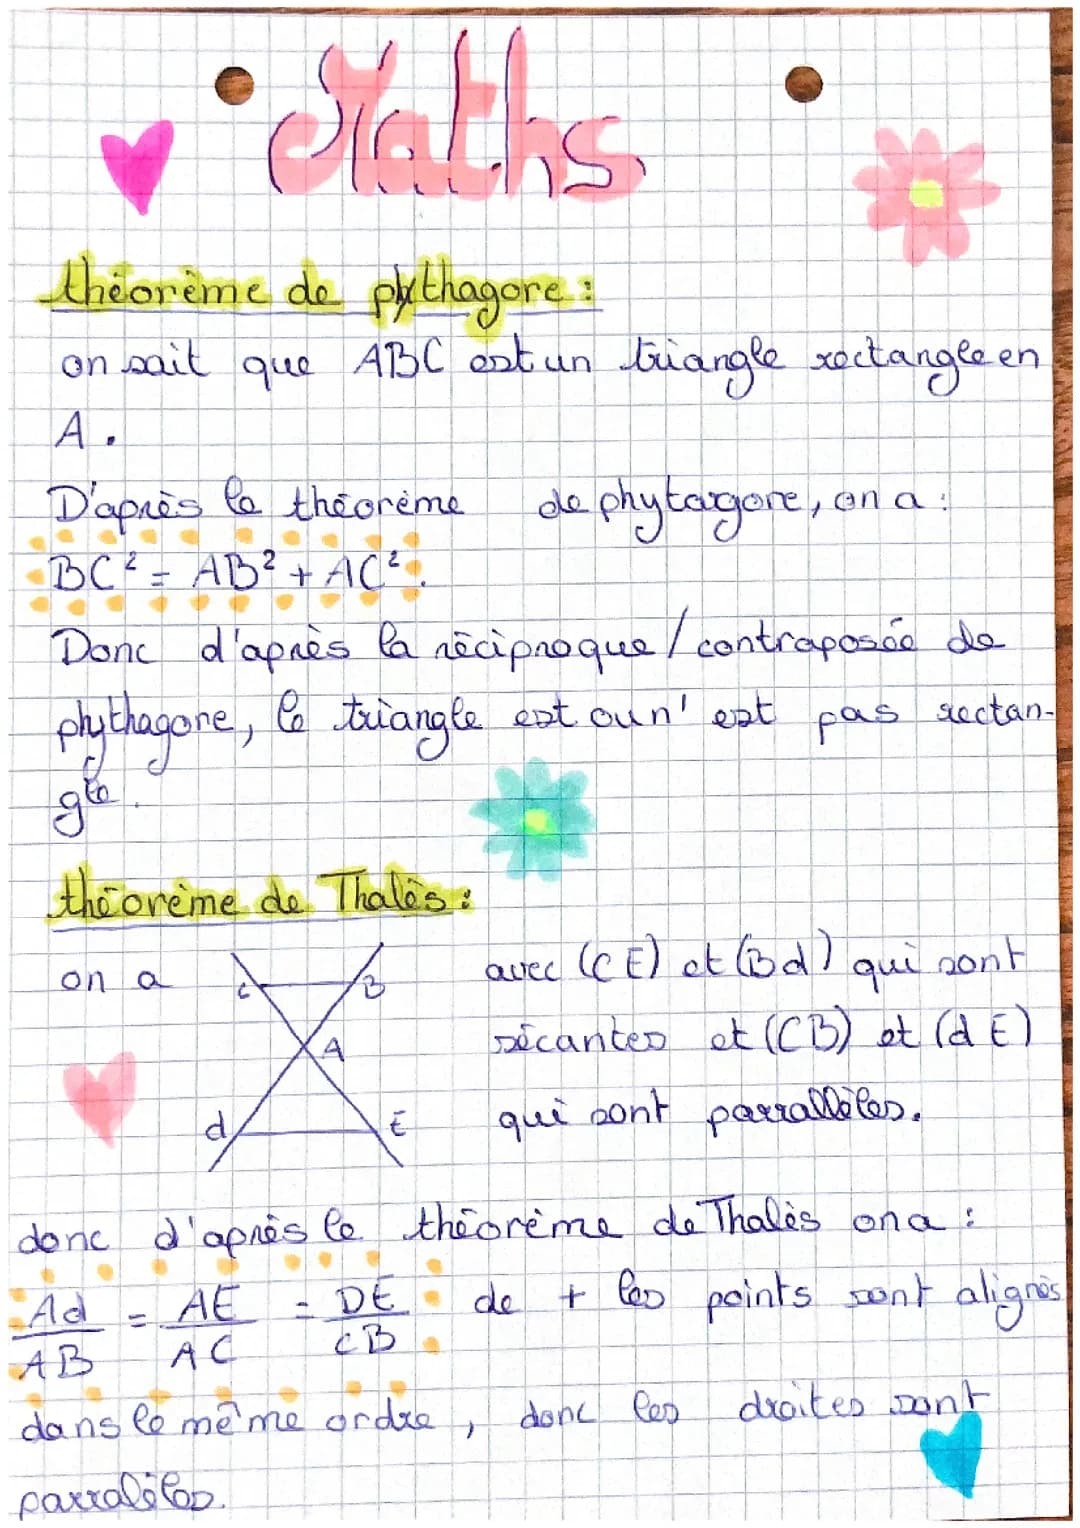 Maths
théorème de phythagore :
on sait que ABC est un triangle rectangle en
A.
D'après le théorème de phytagore, on a :
BC² = AB² + AC².
Donc d'après la réciproque / contraposée de
phythagore, le triangle est ou n' est pas rectan-
gle.
théorème de Thalès :
on a
C B
A
d E
avec (CE) et (Bd) qui sont
sécantes et (CB) et (dE)
qui sont parrallèles.
donc d'après le théorème de Thalès on a :
Ad/AB = AE/AC = DE/CB de + les points sont alignés
dans le même ordre, donc les droites sont
parralèles.